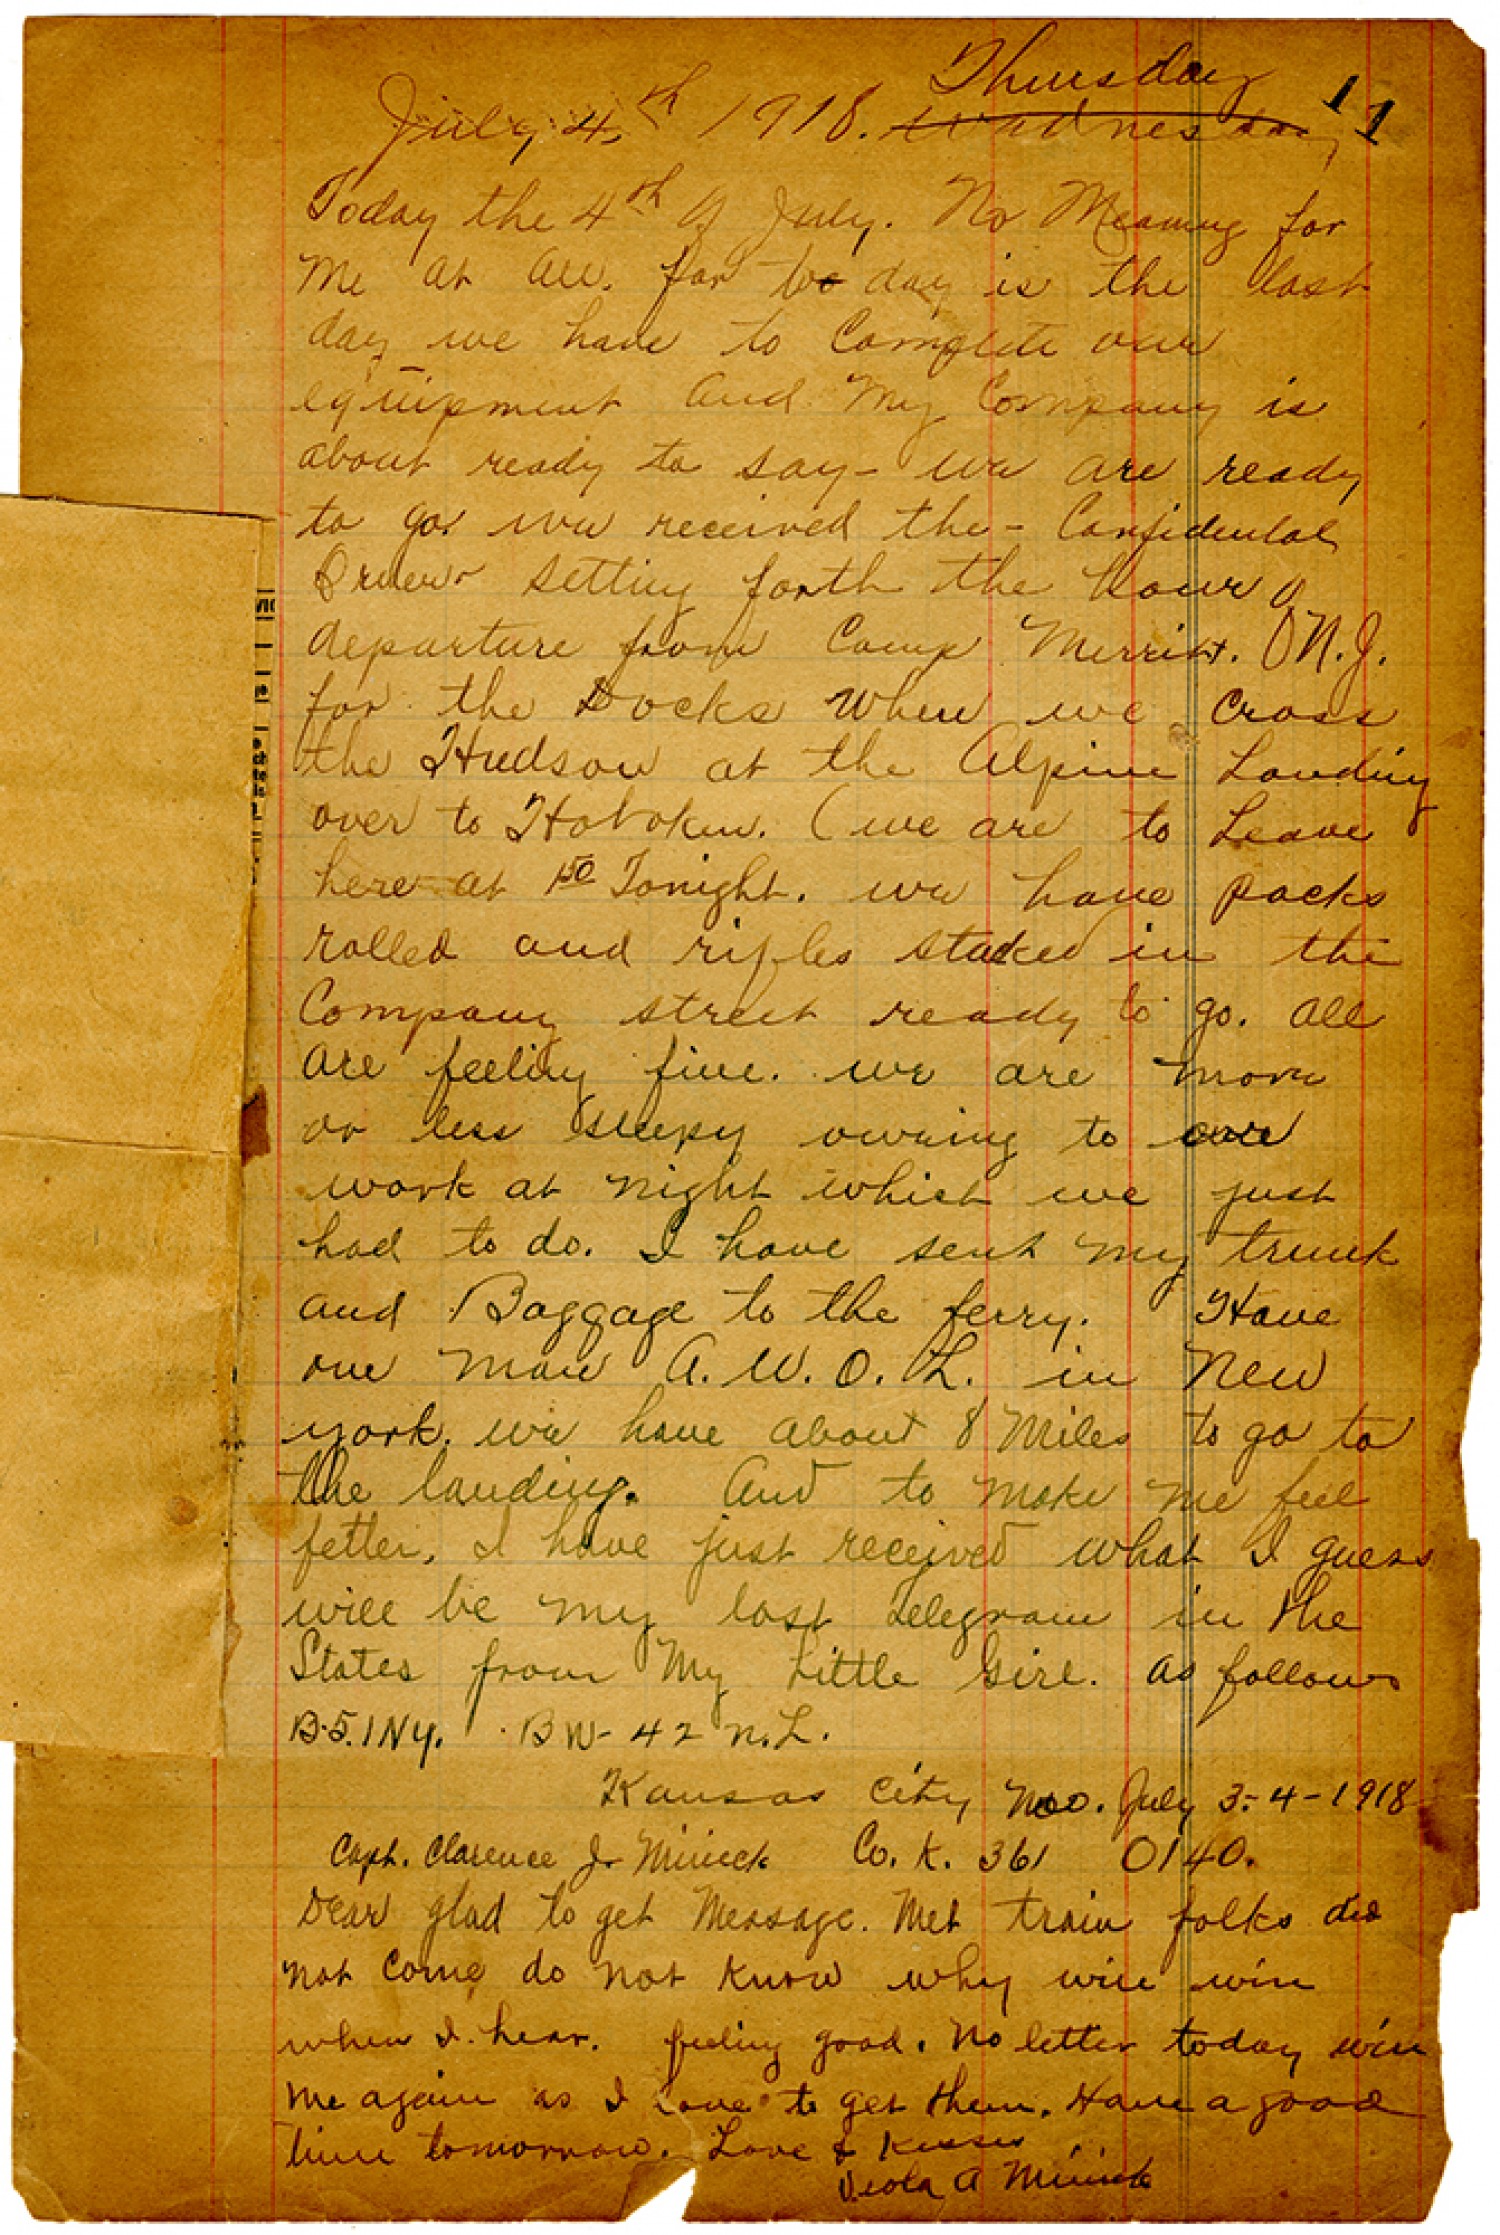 Thursday 11
July 4th 1918. Wednesday
Today the 4th of July. No Meaning for
me at all. for to day is the last
day we have to Complete our
equipment and My Company is
about ready to say - we are ready
to go. we received the - Confidental
Order setting forth the hour of
departure from Camp Merritt. N.J.
for the Docks when we cross
the Hudson at the Alpine Landing
over to Hoboken. (we are to Leave
here at 150 Tonight. we have packs
rolled and rifles stacked in the
Company street ready to go. all
are feeling fine. we are more
or less sleepy owning to our
work at night which we just
had to do. I have sent my trunk
and Baggage to the ferry. Have
one man A.W.O.L. in New
york. we have about 8 Miles to go to
the landing. And to make me feel
fetter, I have just received what I guess
will be my last telegram in the
States from My Little Girl. as follows
B-5.1NY. BW- 42 N.L.
Kansas City Mo. July 3-4-1918
Capt. Clarence J. Minick Co. K. 361 0140.
Dear glad to get Message. Met train folks did
not come do not know why will wire
when I hear. feeling good. No letter today wire
me again as I love to get them. Have a good
time tomorrow. Love & Kisses
Viola A Minick